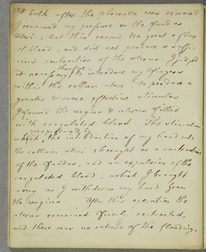 after the placenta was removed
I removed my pressure on the fundus
uteri; but there came too great a flow
of blood, and did not produce a suffi-
cient contraction of the uterus I judged
it necessary to introduce my fingers
within the collum uteri, to produce a
greater & more effectual stimulus
I found the vagina & uterus filled
with coagulated blood. The stimulus
which the introduction of my hand into
the collum uteri brought on a contraction
of the fundus, and an expulsion of the
coagulated blood, which I brought
away as I withdrew my hand from
the vagina. After this exertion the
uterus remained contracted,
and there was no return of the flooding.